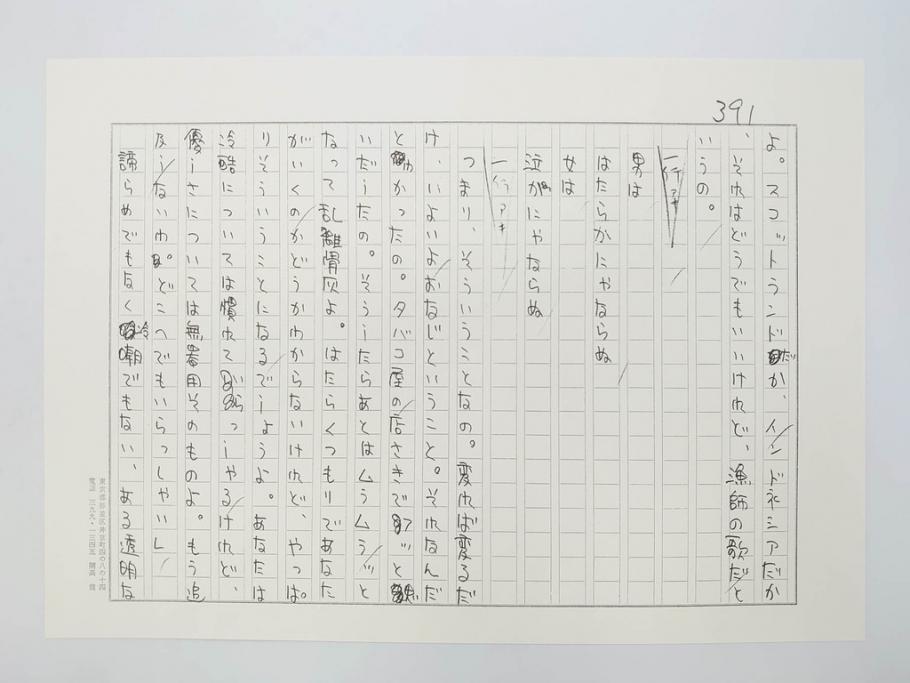 391
よ。スコットランドだか、インドネシアだか
、それはどうでもいいけれど、漁師の歌だと
いうの。
一行アキ
男は
はたらかにゃならぬ
女は
泣かにゃならぬ
一行アキ
つまり、そういうことなの。変れば変るだ
け、いよいよおなじということ。それなんだ
とわかったの。タバコ屋の店さきでフッと
いだしたの。そうしたらあとはムラムラッと
なって乱離骨灰よ。はたらくつもりであなた
がいくのかどうかわからないけれど、やっぱ
りそういうことになるでしょうよ。あなたは
冷酷については慣れてらっしゃるけれど、
優しさについては無器用そのものよ。もう追
及しないわ。どこへでもいらっしゃい」
諦らめでもなく冷嘲でもない、ある透明な
東京都杉並区井草町四の八の十四
電話 三九九・一三四五 開高 健